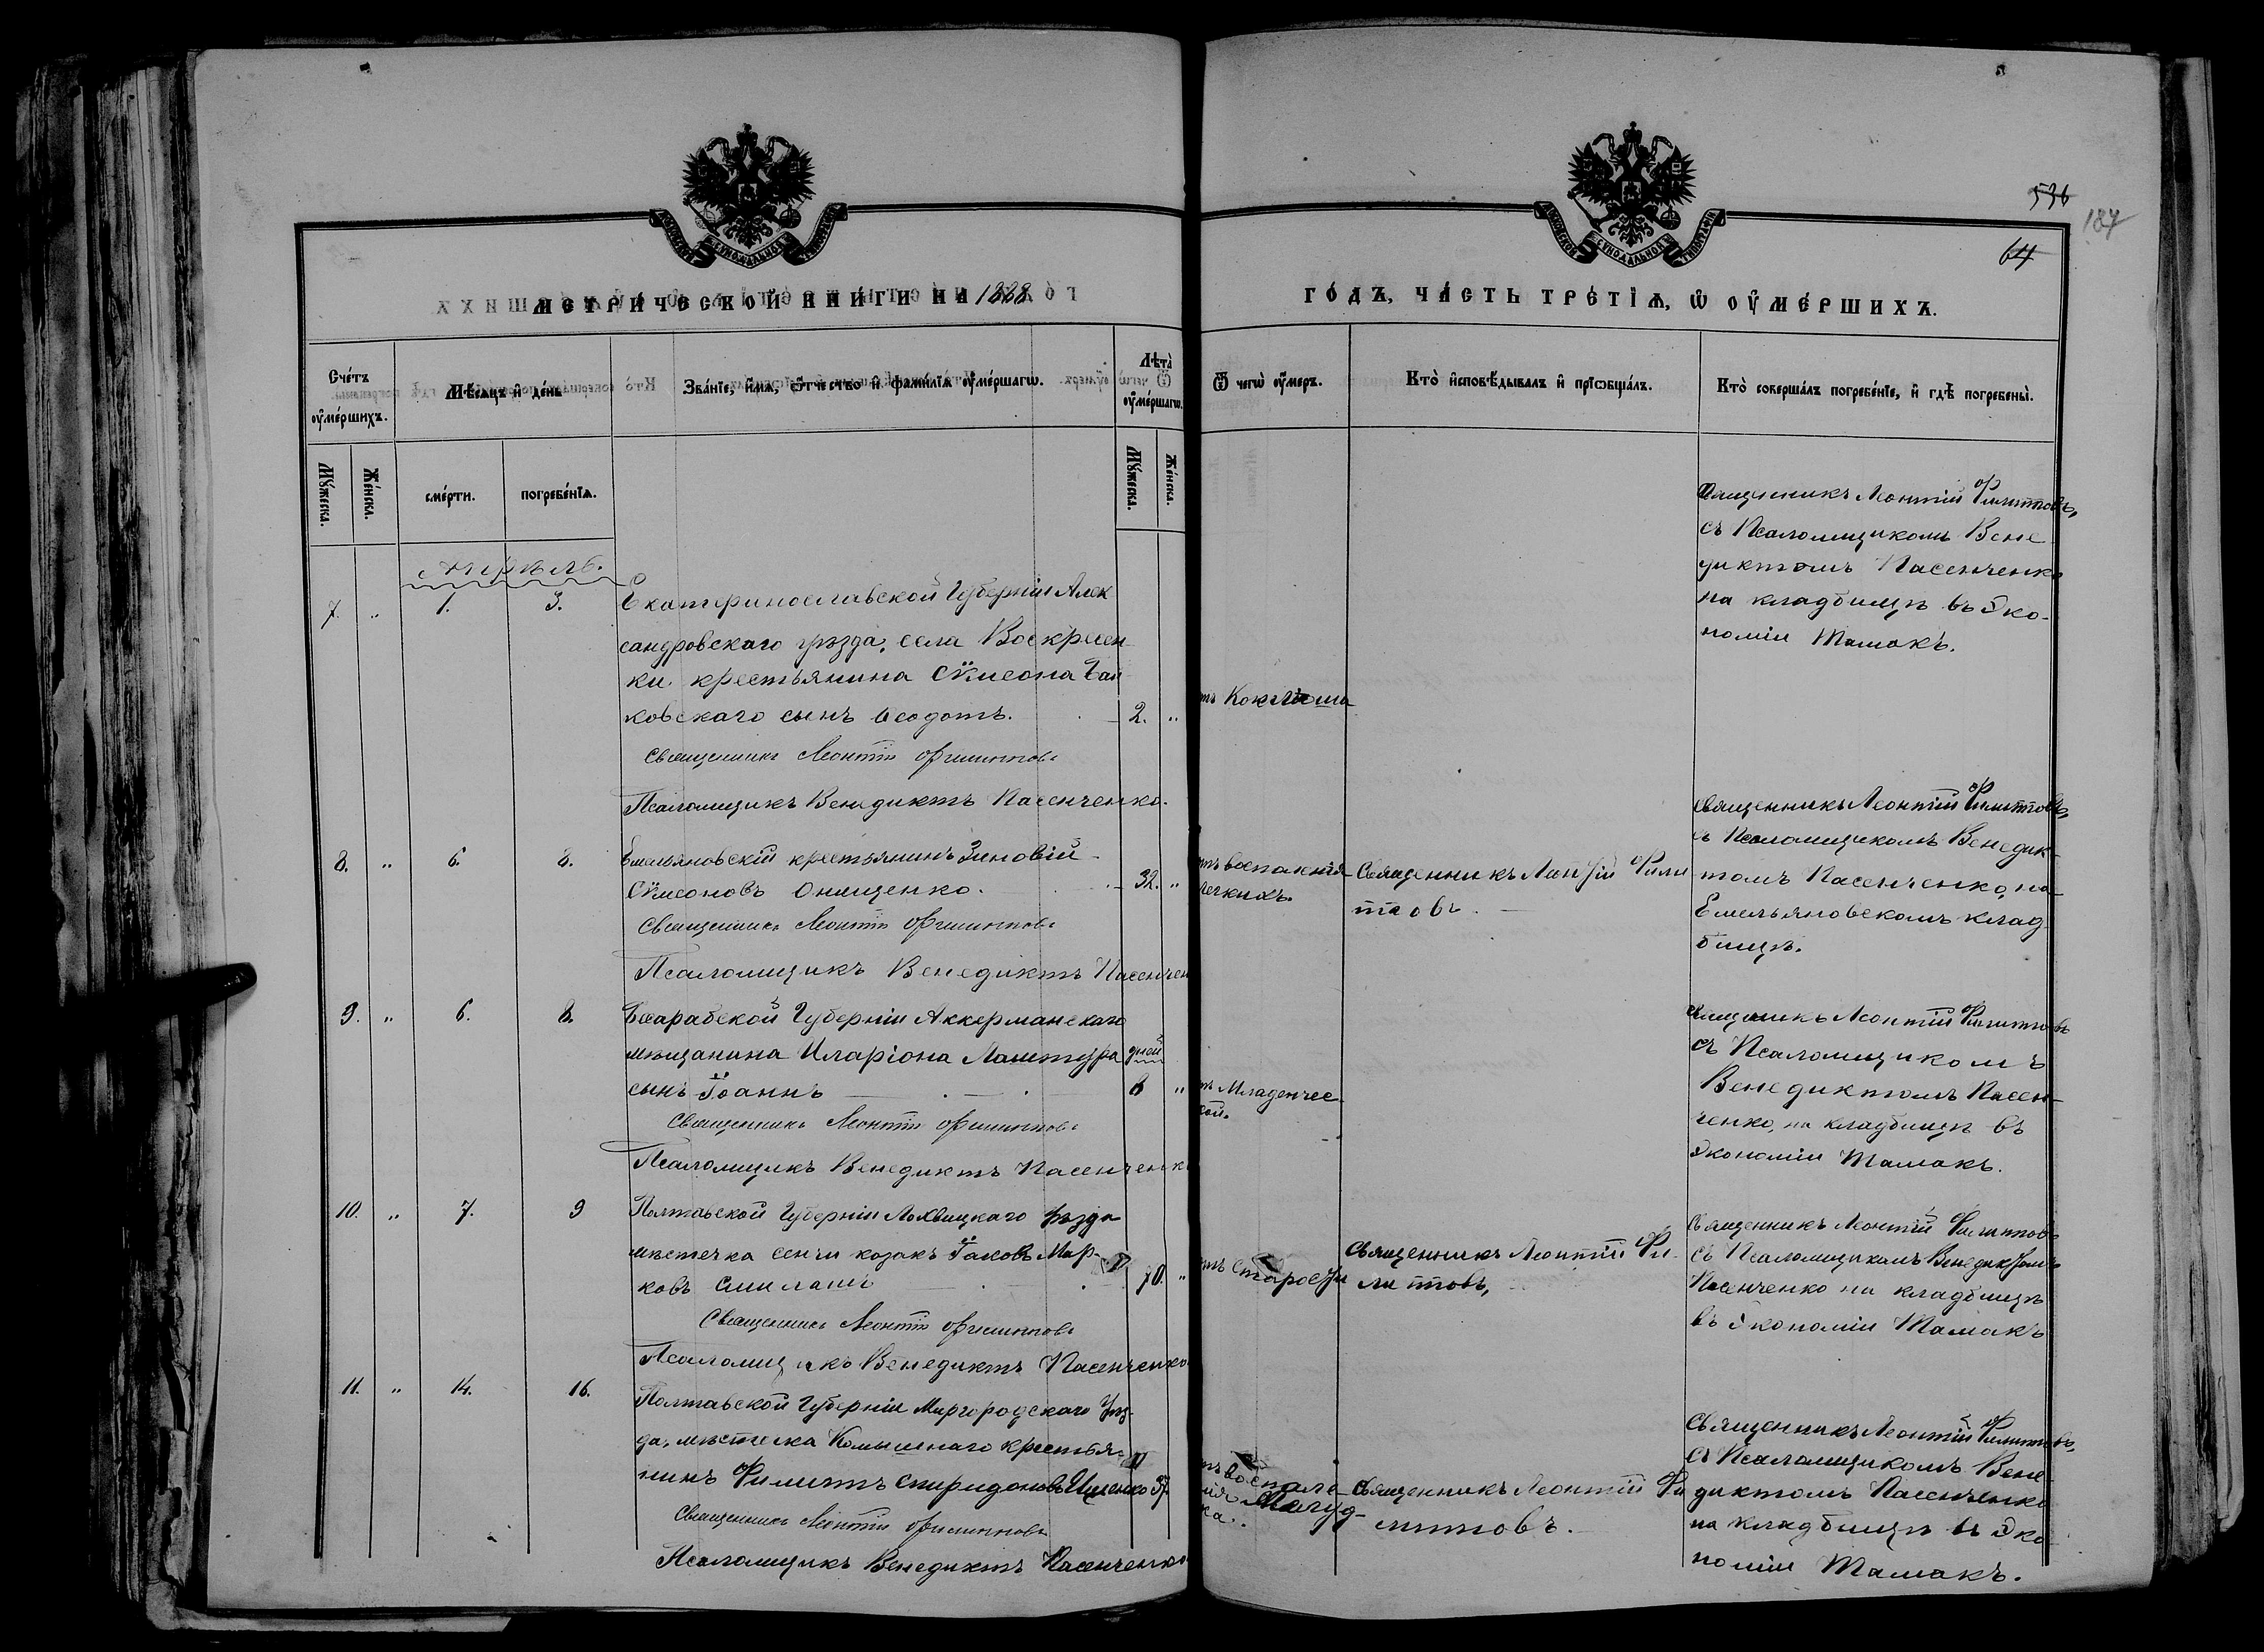 536
187
64
МЕТРИЧЕСКОЙ КНИГИ НА 1888
ГОДЪ, ЧАСТЬ ТРЕТІѦ, Ѡ ОУМЕРШИХЪ.
Счетъ оумершихъ.
Мѣсѧцъ и день
Званіе, имѧ, отчество и фамиліѧ оумершагѡ.
Лѣта оумершагѡ.
Ѿ чегѡ оумеръ.
Кто исповѣдывалъ и пріѡбщалъ.
Кто совершалъ погребеніе, и гдѣ погребены.
Мужеска.
Женска.
смерти.
погребеніѧ.
Мужеска.
Женска.
Апрѣль.
7. " 1. 3.
Екатеринославской Губерніи Алек
сандровскаго уѣзда, села Воскресен
ки крестьянина Сѵмеона Чай
ковскаго сынъ Ѳеодотъ. 2. "
Священникъ Леонтій Филипповъ
Псаломщикъ Венедиктъ Пасенченко.
тъ Коклюша
Священникъ Леонтій Филипповъ,
съ Псаломщикомъ Вене
диктомъ Пасенченко
на кладбищѣ въ Эко-
номіи Тамакъ.
8. " 6. 8.
Емельяновскій крестьянинъ Зиновій
Сѵмеоновъ Онищенко. 32. "
Священникъ Леонтій Филипповъ
Псаломщикъ Венедиктъ Пасенчен
тъ воспаленія
легкихъ.
Священникъ Леонтій Фили
пповъ.
Священникъ Леонтій Филипповъ,
съ Псаломщикомъ Венедик-
томъ Пасенченко, на
Емельяновскомъ клад
бищѣ.
9. " 6. 8.
Бесарабской Губерніи Аккерманскаго
мѣщанина Иларіона дней
сынъ Іоаннъ 8 "
Священникъ Леонтій Филипповъ
Псаломщикъ Венедиктъ Пасенченк
тъ Младенчес
кой.
Священникъ Леонтій Филипповъ
съ Псаломщикомъ
Венедиктомъ Пасен-
ченко, на кладбищѣ въ
Экономіи Тамакъ.
10. " 7. 9
Полтавской Губерніи Лохвицкаго уѣзда
мѣстечка Сенчи козакъ Іаковъ Мар-
ковъ 70. "
Священникъ Леонтій Филипповъ
Псаломщикъ Венедиктъ Пасенченко
тъ Старости
Священникъ Леонтій Фи
липповъ,
Священникъ Леонтій Филипповъ
съ Псаломщикомъ Венедиктомъ
Пасенченко на кладбищѣ
въ Экономіи Тамакъ
11. " 14. 16.
Полтавской Губерніи Миргородскаго Уѣз-
да, мѣстечка Комышнаго крестья-
нинъ Филиппъ Спиридоновъ Ищенко 37.
Священникъ Леонтій Филипповъ
Псаломщикъ Венедиктъ Пасенченко
тъ воспале-
нія Желуд-
ка.
Священникъ Леонтій Фи
липповъ.
Священникъ Леонтій Филипповъ,
съ Псаломщикомъ Вене-
диктомъ Пасенченко
на кладбищѣ въ Эко
номіи Тамакъ.